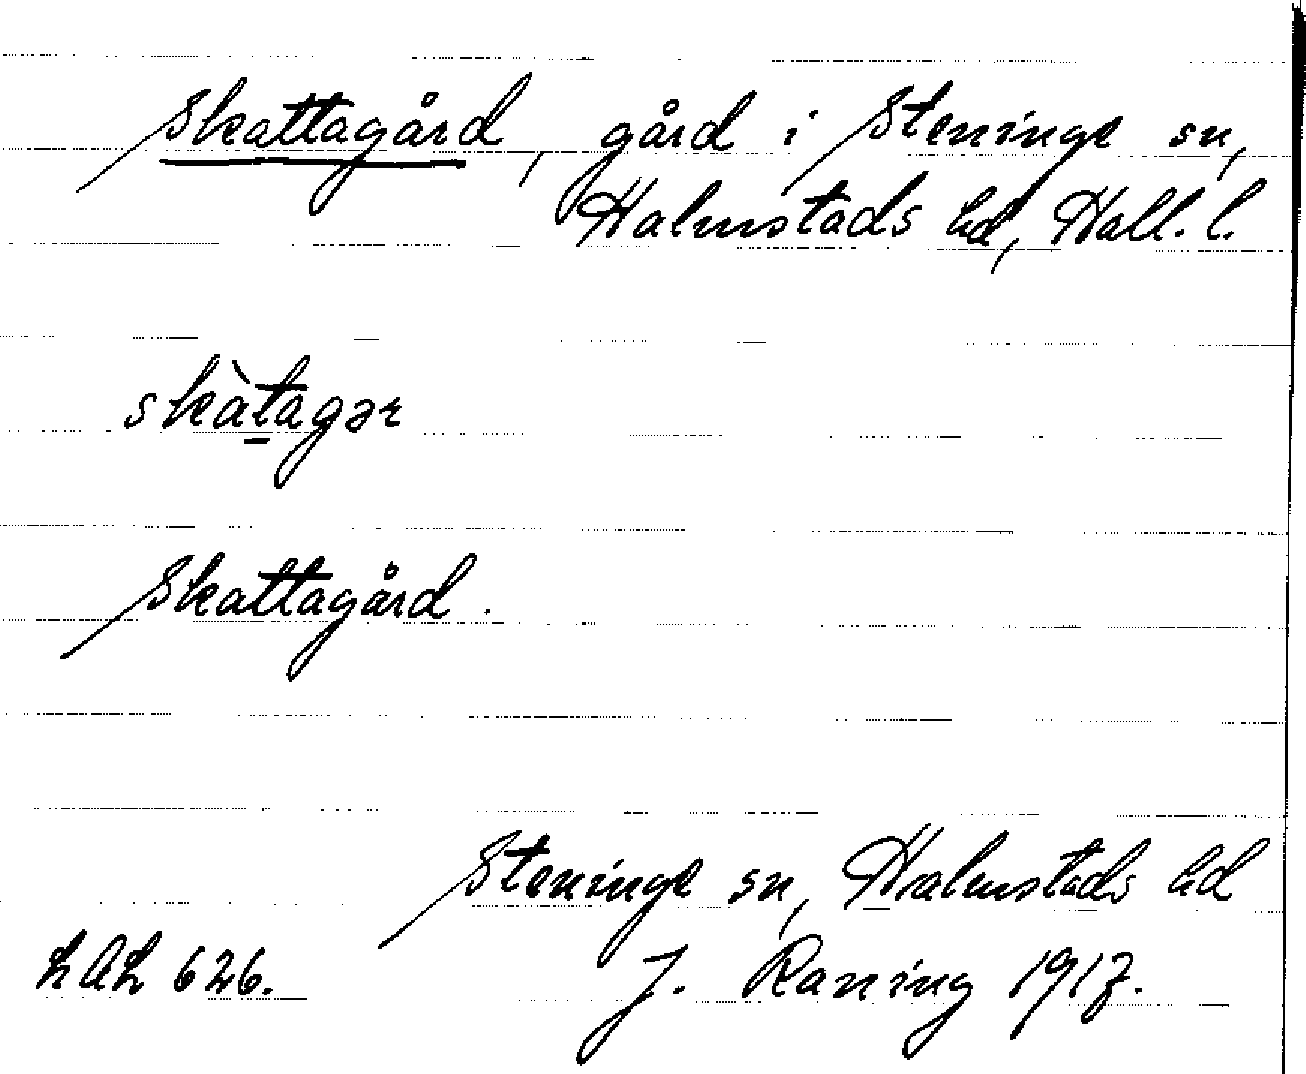 Skattagård, gård i Steninge sn,
Halmstads hd, Hall. l.
skàt̠agər
Skattagård.
Steninge sn, Halmstads hd
LAL 626. J. Raning 1917.